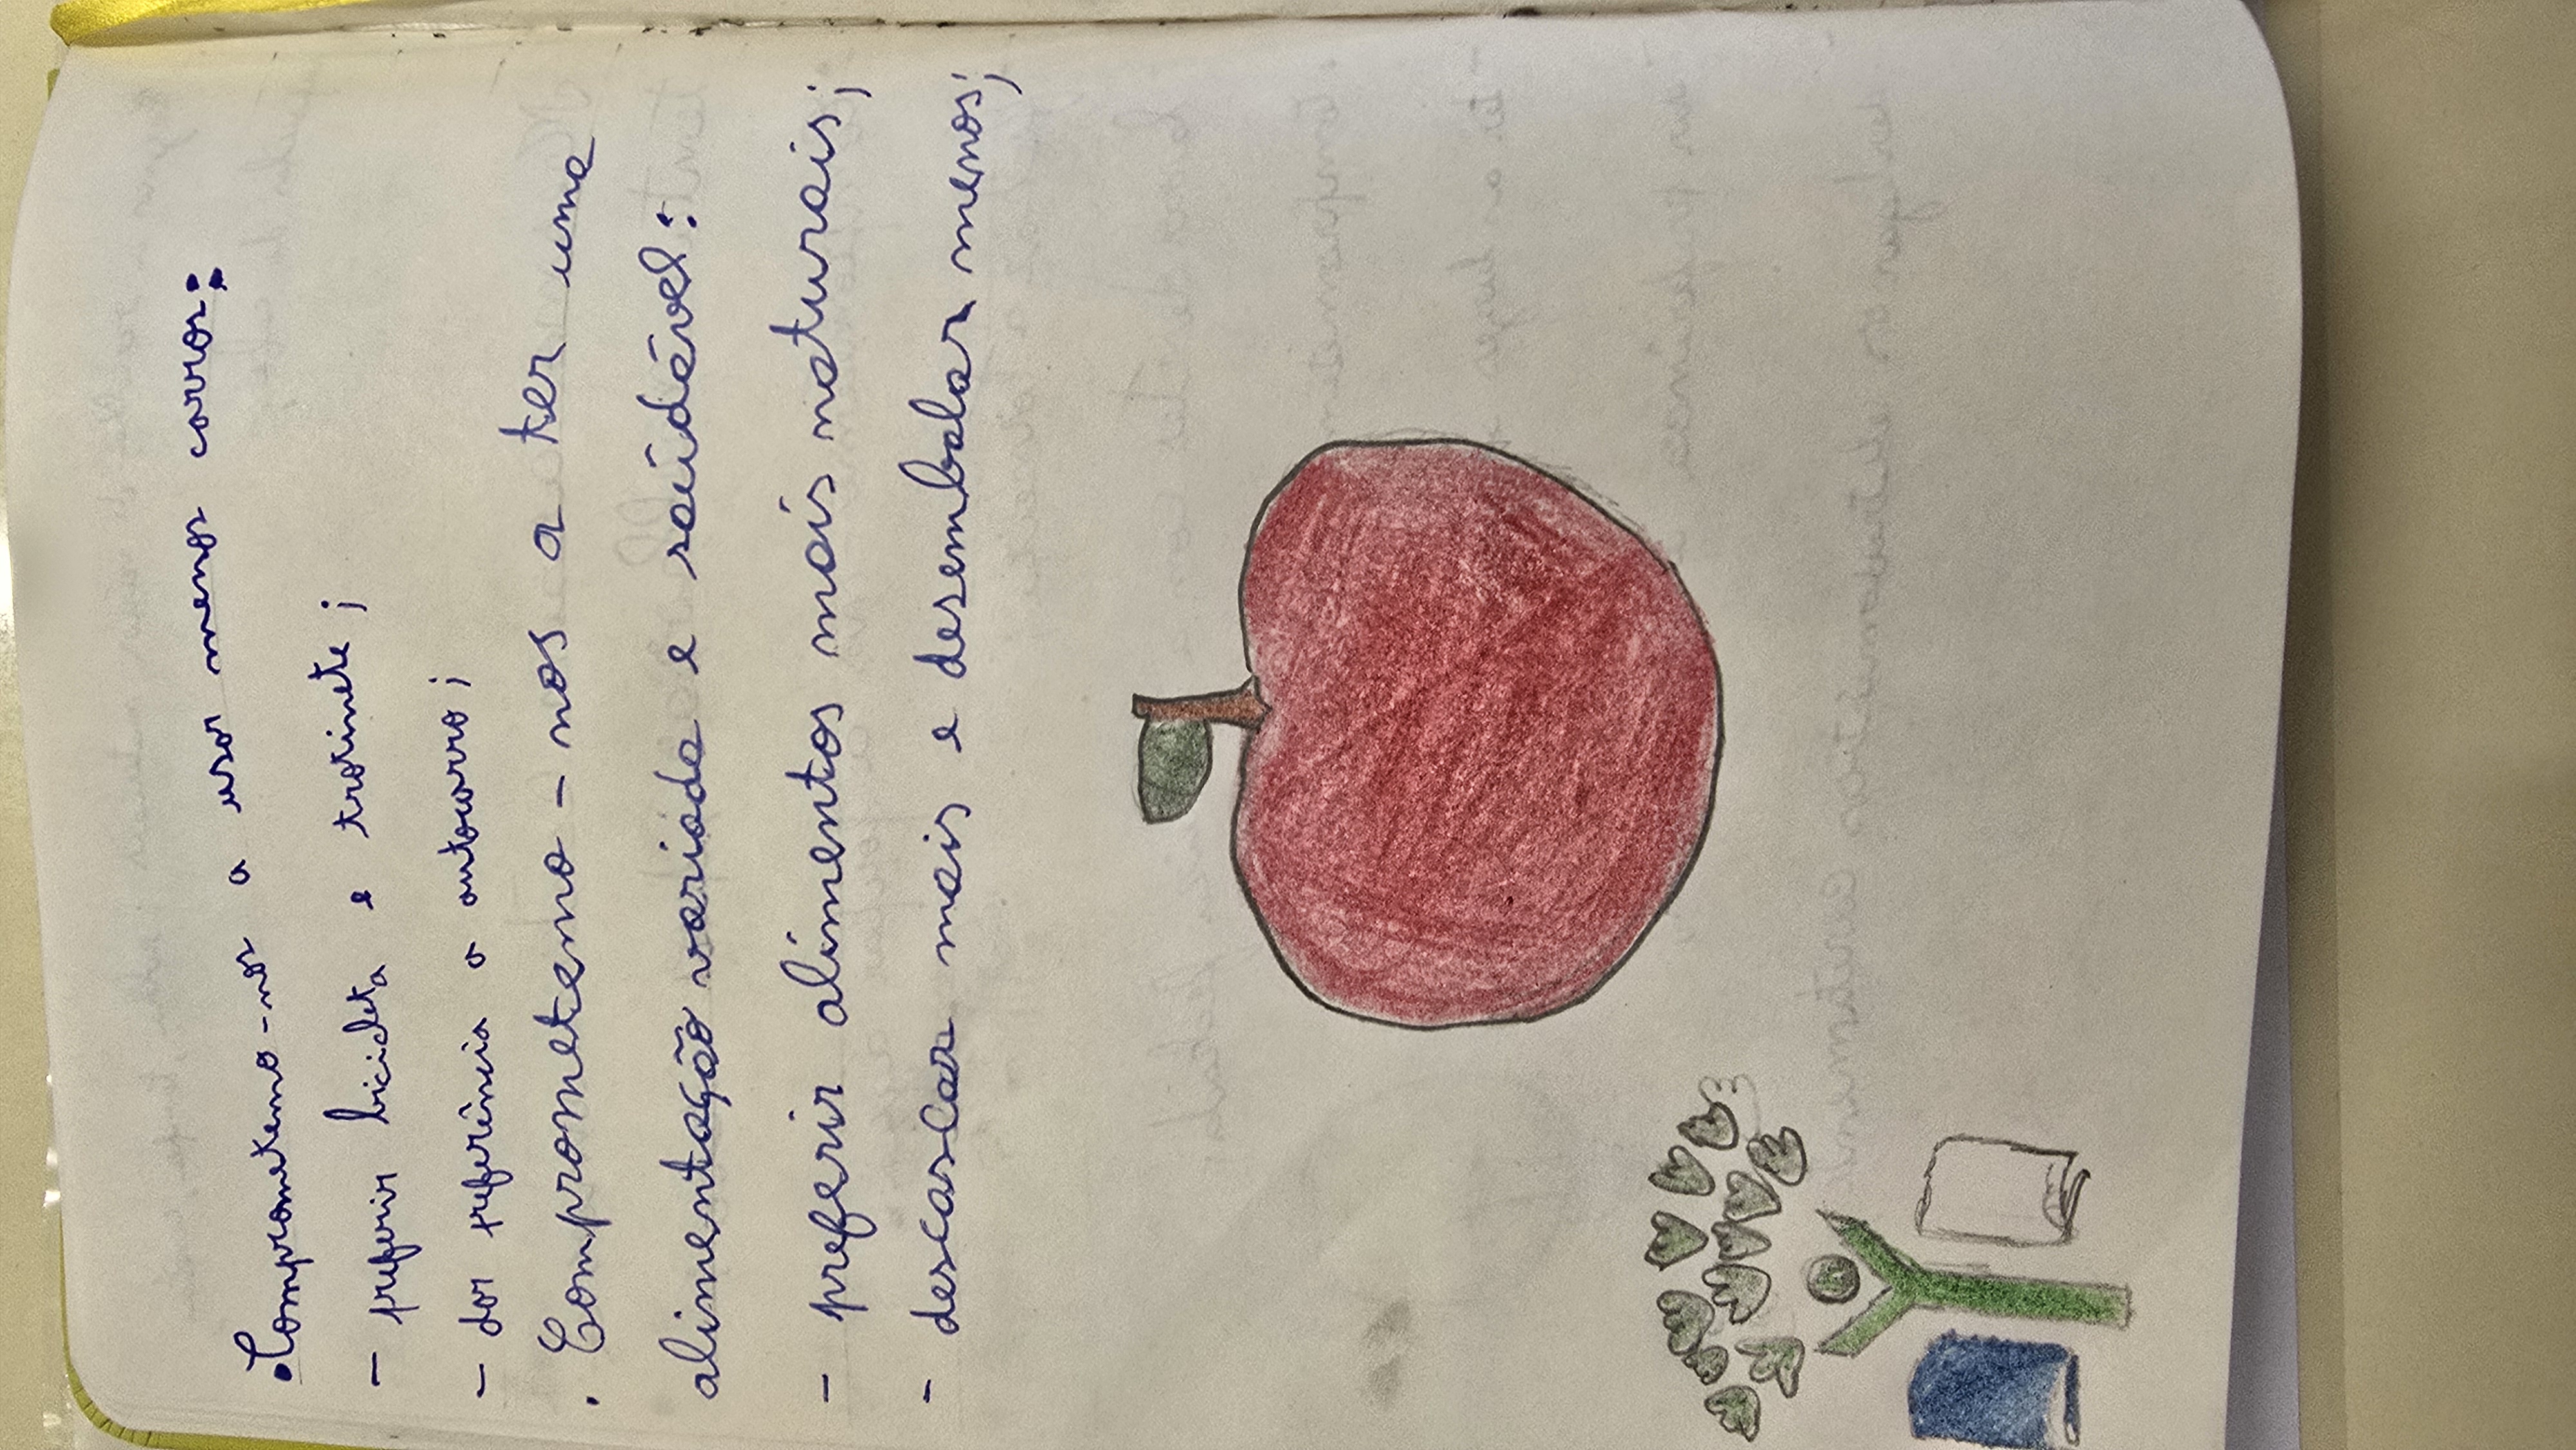 • Comprometemo-nos a usar menos carros:
- preferir bicicleta e trotinete;
- dar preferência o autocarro;
. Comprometemo-nos a ter uma
alimentação variada e saúdável:
- preferir alimentos mais naturais;
- descascar mais e desembalar menos;